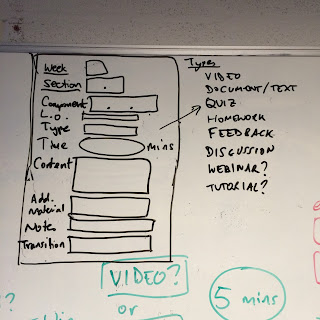 Week
Section
Component
L.O.
Type
Time mins
Content
Add.
Material
Notes
Transition
Types
VIDEO
DOCUMENT/TEXT
QUIZ
HOMEWORK
FEEDBACK
DISCUSSION
WEBINAR?
TUTORIAL?
VIDEO?
or
5 mins